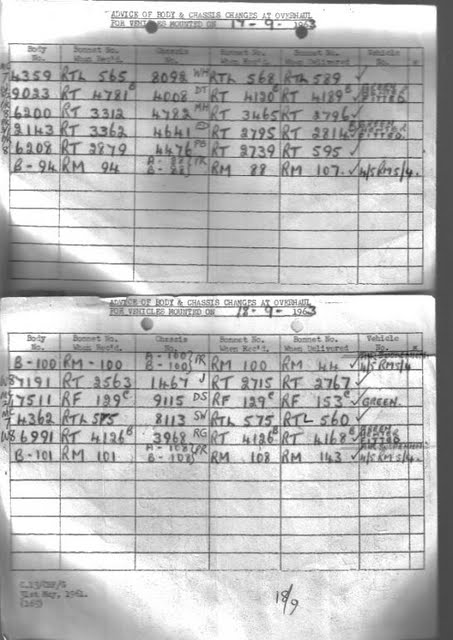 ADVICE OF BODY & CHASSIS CHANGES AT OVERHAUL
FOR VEHICLES MOUNTED ON 17-9-1963
Body No. Bonnet No. When Rec'd. Chassis No. Bonnet No. When Rec'd. Bonnet No. When Delivered Vehicle No. x
4359 RTL 565 8098 WH RTL 568 RTL 589 ✓
9023 RT 4781 4008 DT RT 4120 RT 4189 ✓ FITTED
6200 RT 3312 4782 MH RT 3465 RT 2796 ✓
2143 RT 3362 4641 RT 2795 RT 2814 ✓ FITTED
6208 RT 2879 4476 PB RT 2739 RT 595 ✓
B-94 RM 94 A-88 B-88 PR RM 88 RM 107 ✓ 4/5 RM 5/4.
ADVICE OF BODY & CHASSIS CHANGES AT OVERHAUL
FOR VEHICLES MOUNTED ON 18-9-1963
Body No. Bonnet No. When Rec'd. Chassis No. Bonnet No. When Rec'd. Bonnet No. When Delivered Vehicle No. x
B-100 RM-100 A-100 B-100 PR RM 100 RM 44 ✓ 4/5 RM 5/4
W8 7191 RT 2563 1467 J RT 2715 RT 2767 ✓
7511 RF 129 C 9115 DS RF 129 C RF 153 C ✓ GREEN.
4362 RTL 575 8113 SW RTL 575 RTL 560 ✓
W8 6991 RT 4126 B 3968 RG RT 4126 B RT 4168 B ✓ FITTED
B-101 RM 101 A-108 B-108 PR RM 108 RM 143 ✓ 4/5 RM 5/4.
31st May, 1961.
(165)
18/9